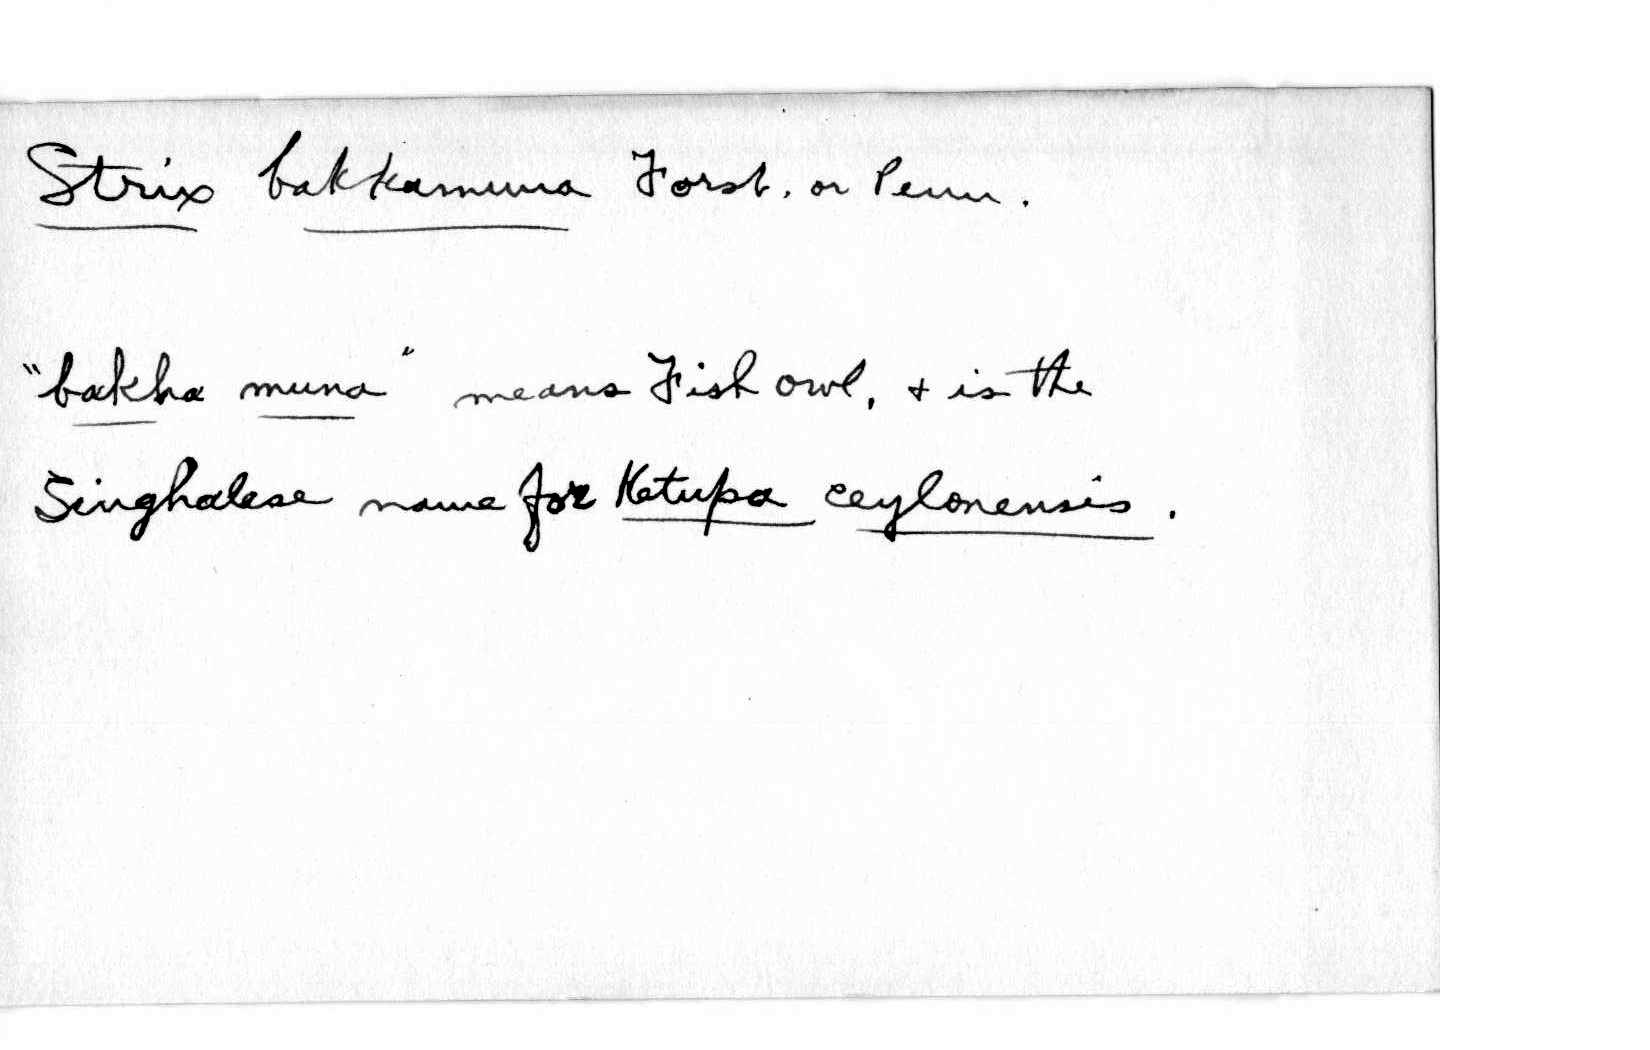 Strix bakkamuna Forst. or Penn.
"bakha muna" means Fish owl, + is the
Singhalese name for Ketupa ceylonensis.